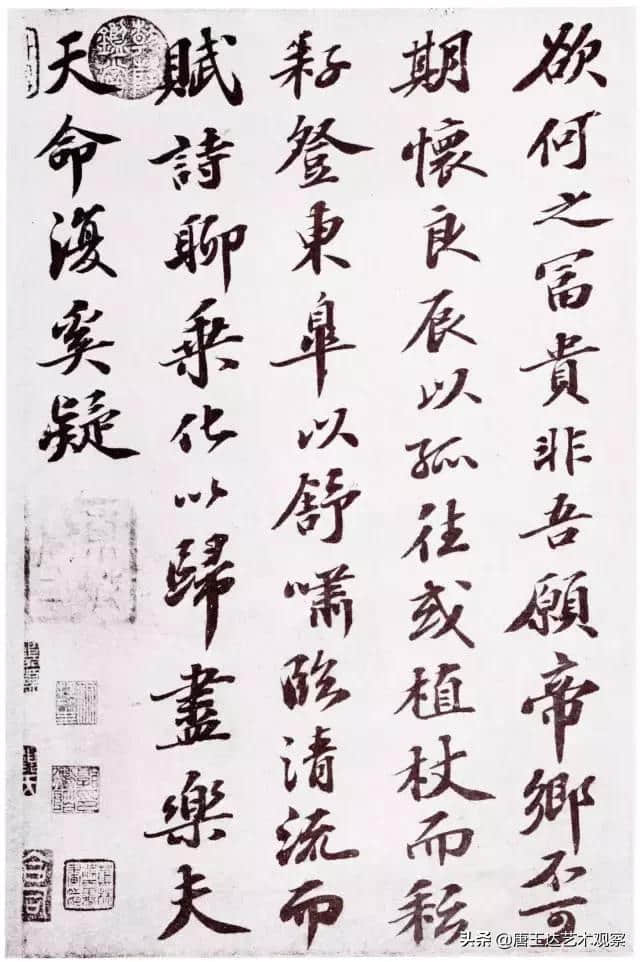 欲何之冨貴非吾願帝鄉不可
期懷良辰以孤往或植杖而耘
耔登東皐以舒嘯臨清流而
賦詩聊乘化以歸盡樂夫
天命復奚疑
头条 @唐王达艺术观察